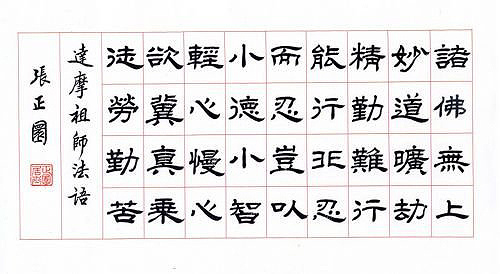 諸佛無上
妙道曠劫
精勤難行
能行非忍
而忍豈以
小德小智
輕心慢心
欲冀真乘
徒勞勤苦
達摩祖師法語
張正